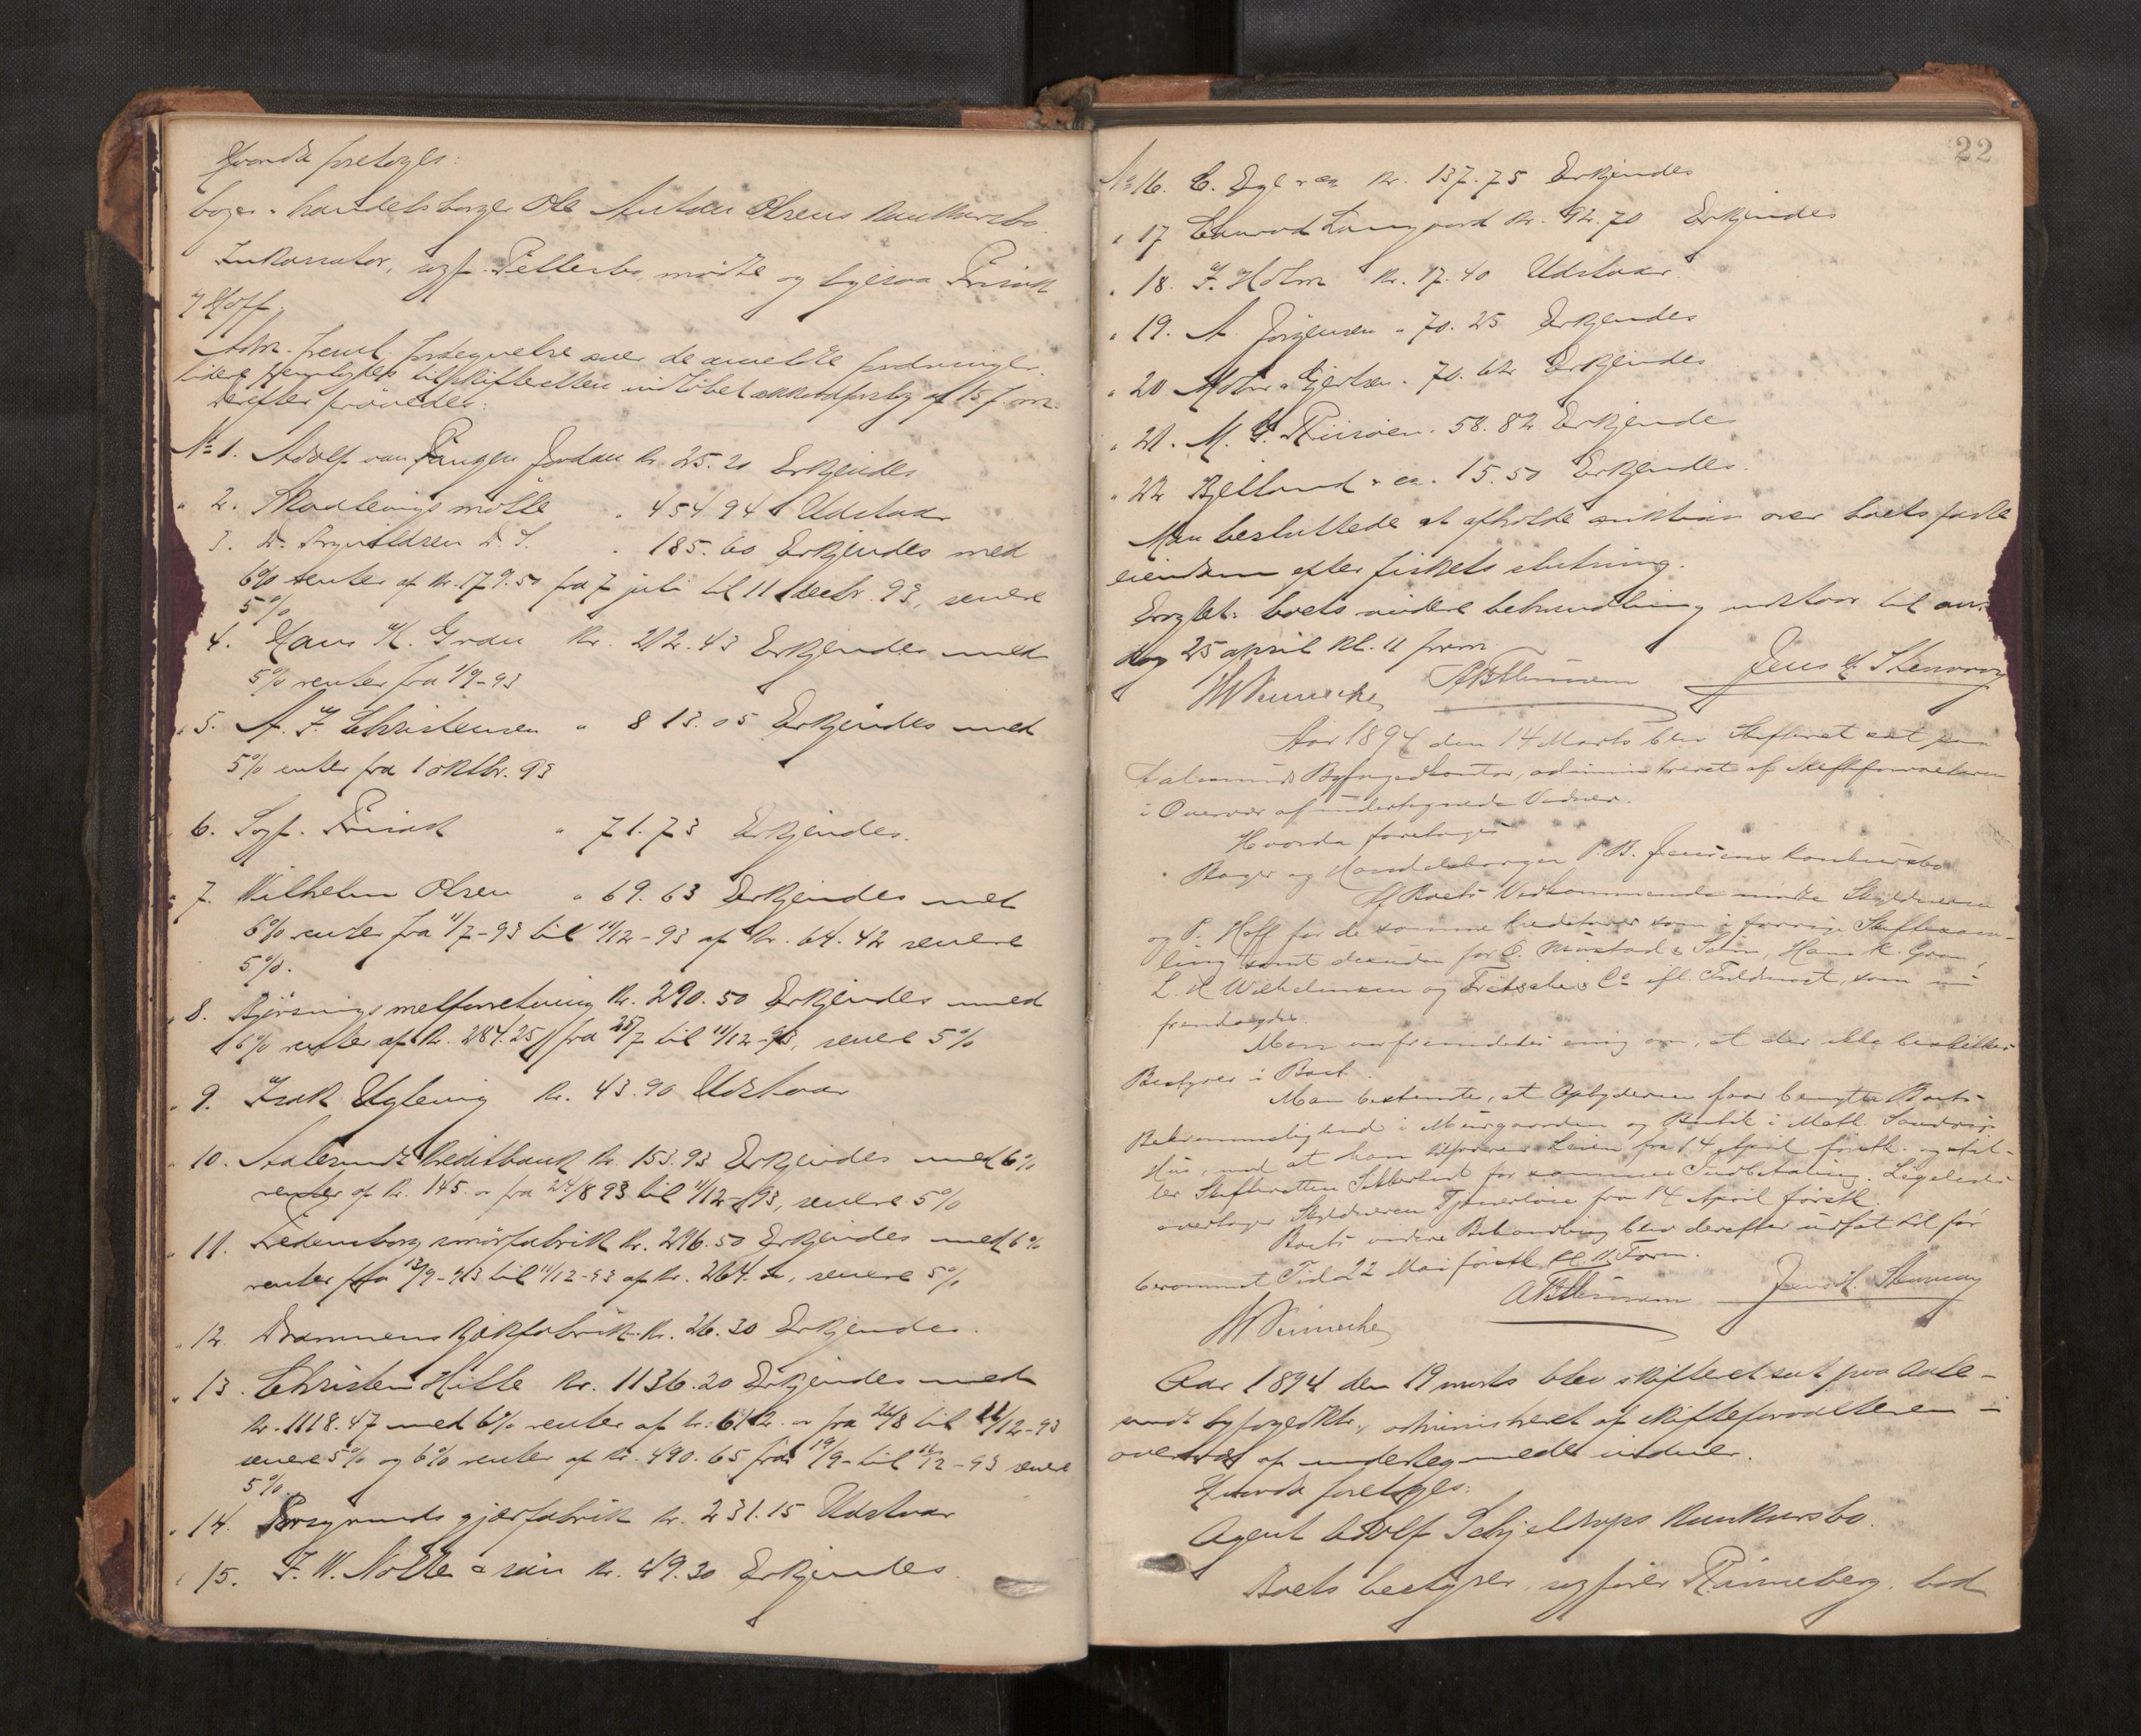 Hvorda foretoges:
bager & handelsborger Ole Antan Olsens konkursbo.
Inkassator, sagf. Petterbø mødte og ligesaa Frisak
& Hoff.
Adm. freml. fortegnelse over de anmeldte fordringer.
til skifteretten akkordforslag af 15 f. m.
Derefter prøvedes:
No 1. Adolf van Jordan kr. 25.20 Erkjendes
" 2. mølle " 454.94 Udstaar
3. D. Brynildsen D. S. " 185.60 Erkjendes med
6% renter af kr. 179.50 fra 7 juli til 11 decbr. 93, senere
5%
4. Hans K. Gran kr. 212.43 Erkjendes med
5% renter fra 1/9-93
" 5. A. F. Christensen " 813.05 Erkjendes med
5% renter fra 1 oktbr. 93
" 6. Sagf. Frisak " 71.73 Erkjendes.
" 7. Wilhelm Olsen " 69.63 Erkjendes med
6% renter fra 11/7-93 til 11/12-93 af kr. 64.42 senere
5%.
" 8. Bjørsvigs melforretning kr. 290.50 Erkjendes med
6% renter af kr. 284.25 fra 25/7 til 11/12-93, senere 5%
" 9. Isak Uglevig kr. 43.90 Udstaar
" 10. Aalesunds kreditbank kr. 153.93 Erkjendes med 6%
renter af kr. 145.- fra 24/8 93 til 11/12-93, senere 5%
" 11. Fredensborg smørfabrik kr. 296.50 Erkjendes med 6%
renter fra 13/9-93 til 11/12-93 af kr. 264.-, senere 5%
" 12. Drammens kjækfabrik kr. 26.30 Erkjendes.
" 13. Christen Hille kr. 1136.20 Erkjendes med
kr. 1118.47 med 6% renter af kr. 612.- fra 26/8 til 11/12-93
senere 5% og 6% renter af kr. 490.65 fra 19/9- til 11/12-93 senere
5%.
" 14. Porsgrunds gjærfabrik kr. 231.15 Udstaar
" 15. F. W. Nolte & søn kr. 49.30 Erkjendes.
22
No 16. C. Egl & co kr. 137.75 Erkjendes
" 17 Conrad Langaard kr. 92.70 Erkjendes
" 18. F. Holm kr. 17.40 Udstaar
" 19. A. Jørgensen " 70.25 Erkjendes
" 20 Mohn & Gjertsen " 70.62 Erkjendes
" 21. M. G. Riisøen " 58.82 Erkjendes
" 22 Bjelland & co. " 15.50 Erkjendes.
Man besluttede at afholde auktion over boets faste
eiendom efter fiskets slutning.
Dvgl.: boets videre behandling udstaar til ons-
dag 25 april kl. 11 form.
Jens H. Stenvaag
Aar 1894 den 14 Marts blev Skifteret sat paa
Aalesunds Byfogedkontor, administreret af Skifteforvalteren
i Overvær af undertegnede Vidner.
Hvorda foretoges
Bager og Handelsborger P. B. Jensens Konkursbo
Af Boets Vedkommende mødte Skyldneren
og P. Hoff for de samme Kreditorer som i forrige Skiftesam-
ling samt desuden for O. Mustad & Søn, Hans K. Gran,
L. H. Wilhelmsen og Fritzsche & Co ifl. Fuldmagt, som nu
fremlagdes.
Man var fremdeles enig om, at der ikke beskikkes
Bestyrer i Boet.
Man bestemte, at Opbyderen faar benytte Boets
Bekvemmelighed i Muregaarden og Butik i Meth. Sandvigs
Hus, mod at han Leien fra 14 April førstk. og stil-
ler Skifteretten Sikkerhed for sammes Indbetaling. Ligeledes
overtager Skyldneren fra 14 April førstk.
Boets videre Behandling blev derefter udsat til før
berammet Tid 22 Mai førstk. Kl. 11 Form.
Jens H. Stenvaag
Aar 1894 den 19 marts blev skifteret sat paa Aale-
sunds byfogedktr., administreret af skifteforvalteren i
overvær af undertegnede vidner.
Hvorda foretoges:
Agent Adolf Schjelderups konkursbo.
Boets bestyrer, sagfører Rønneberg. bad